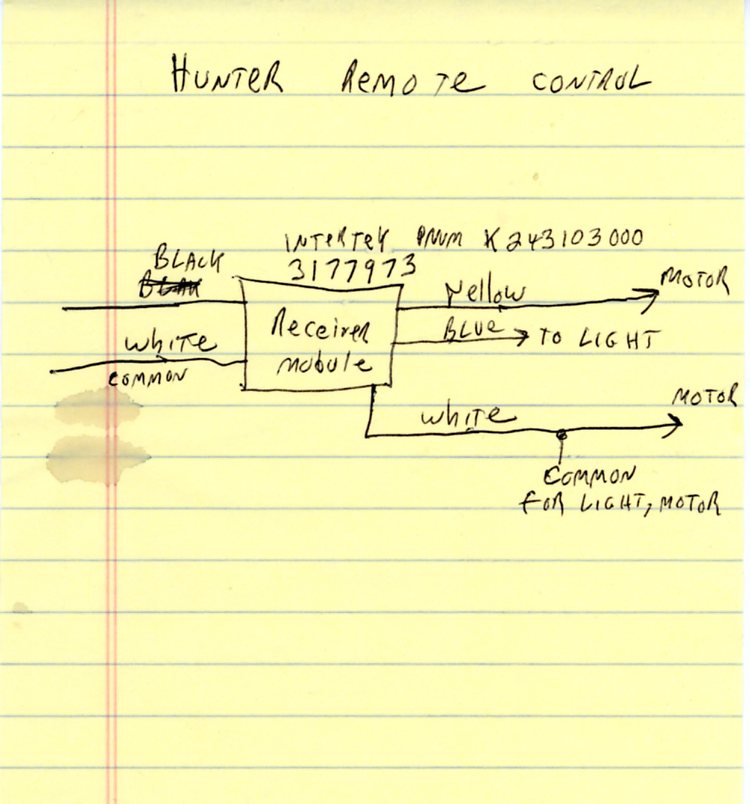 HUNTER REMOTE CONTROL
INTERTEK PNUM K243103000
3177973
BLACK
Yellow
MOTOR
Receiver
module
BLUE
TO LIGHT
white
COMMON
white
MOTOR
COMMON
FOR LIGHT, MOTOR